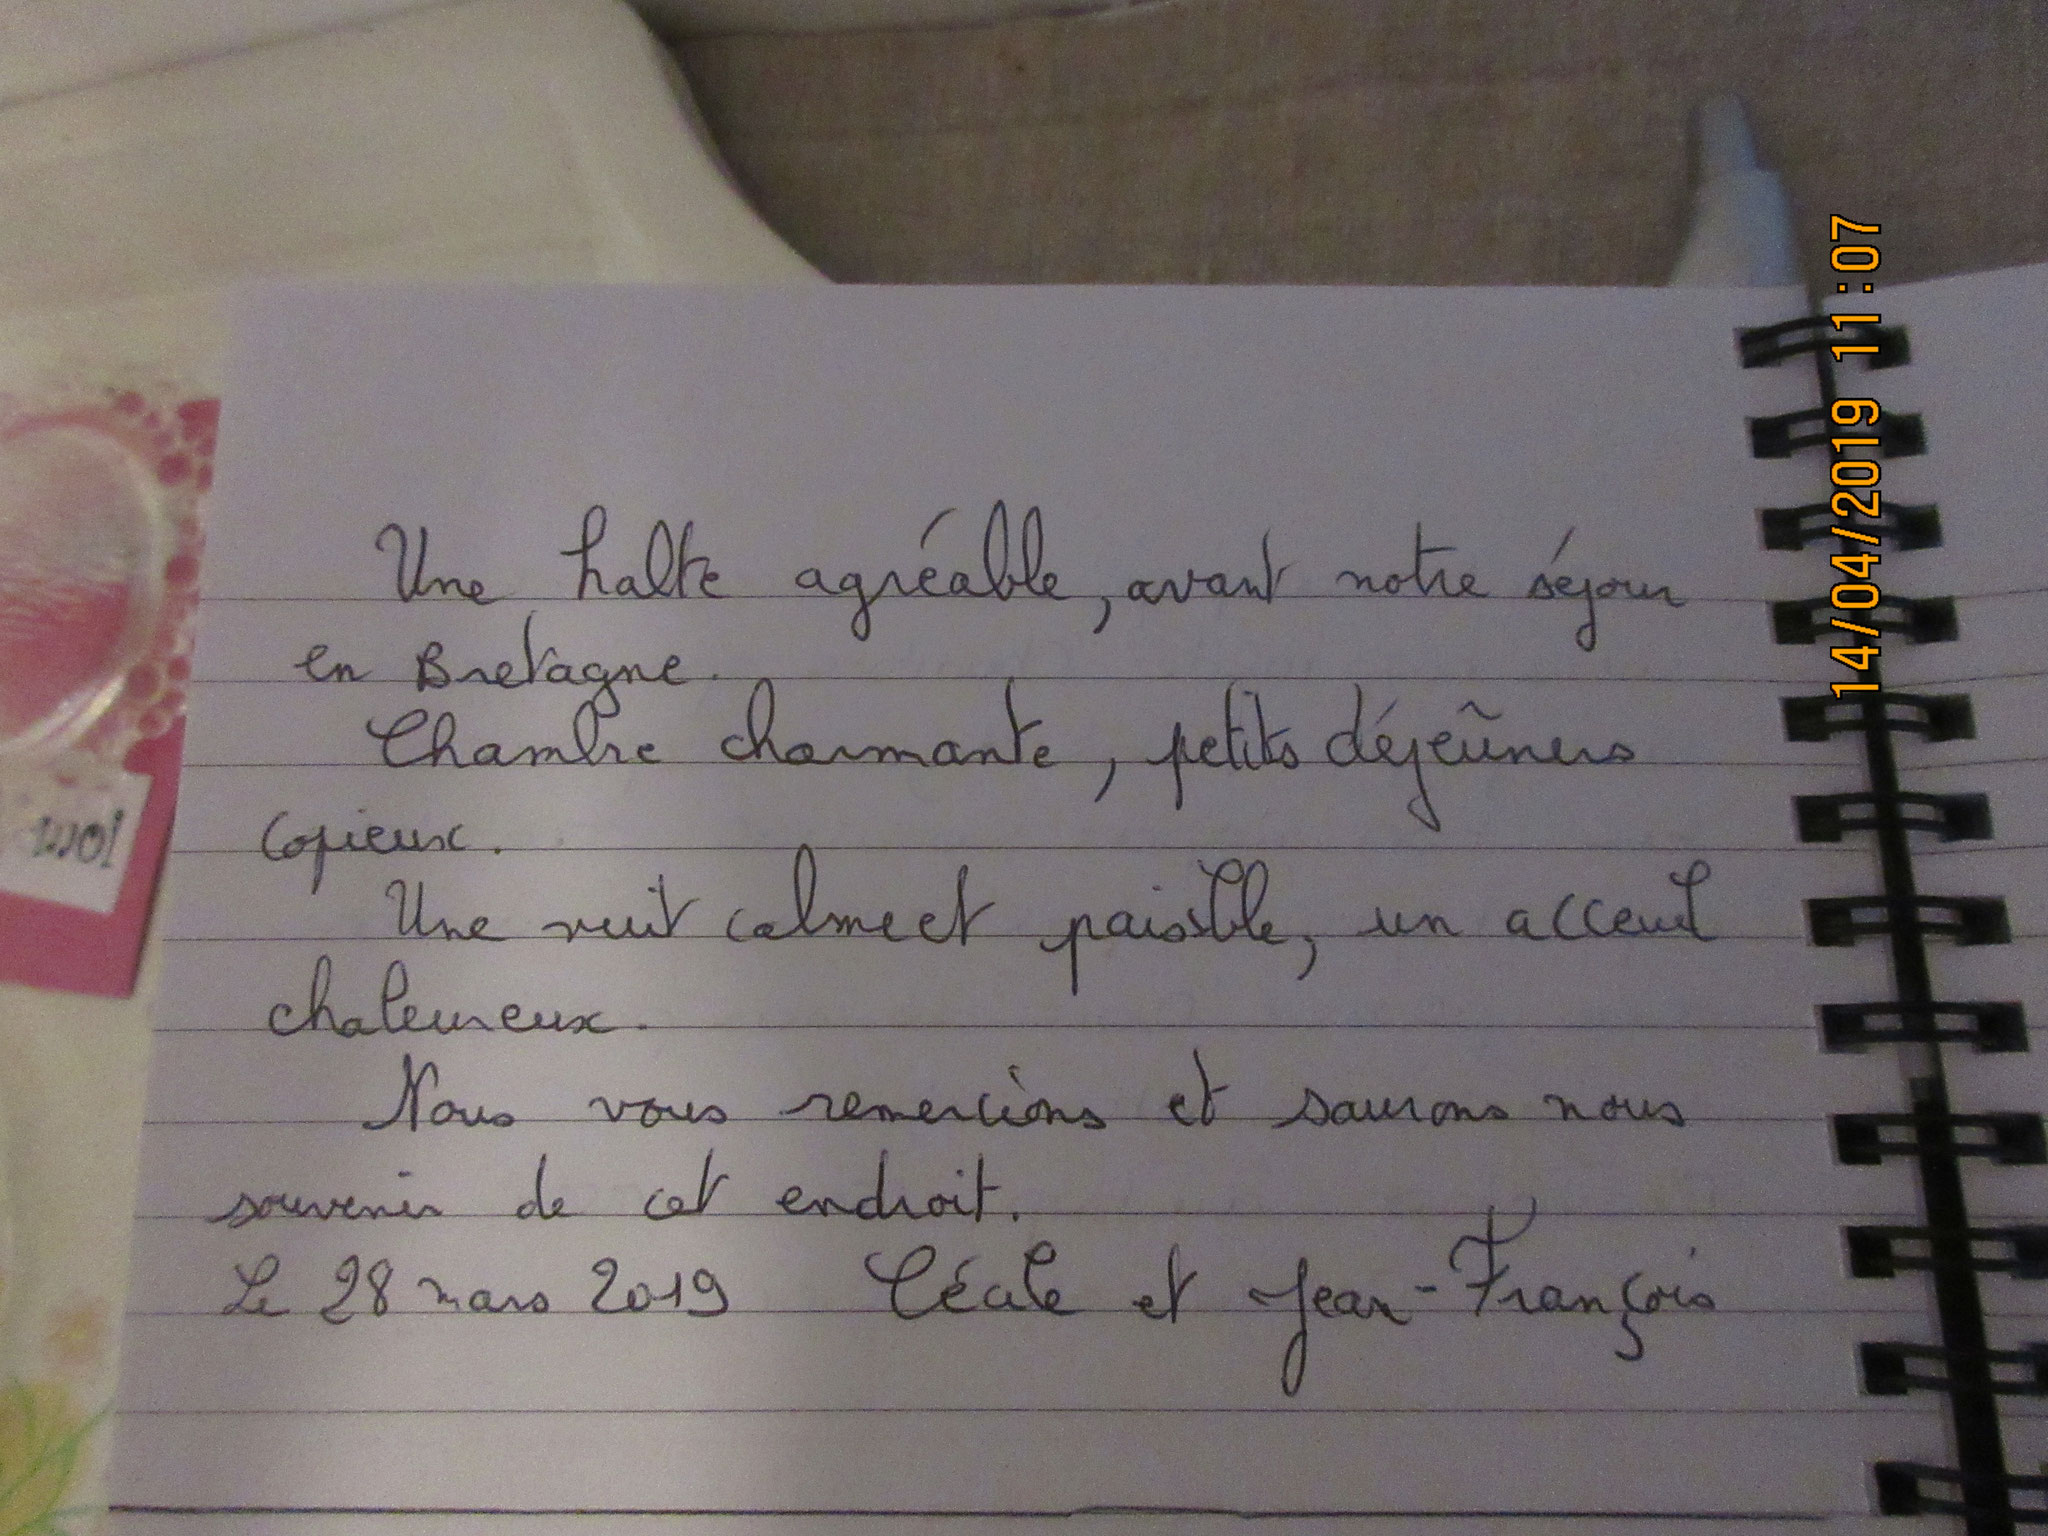 Une halte agréable, avant notre séjour
en Bretagne.
Chambre charmante, petits déjeũners
copieux.
Une nuit calme et paisible, un acceuil
chaleureux.
Nous vous remercions et saurons nous
souvenir de cet endroit.
Le 28 mars 2019 Cécile et Jean-François
14/04/2019 11:07